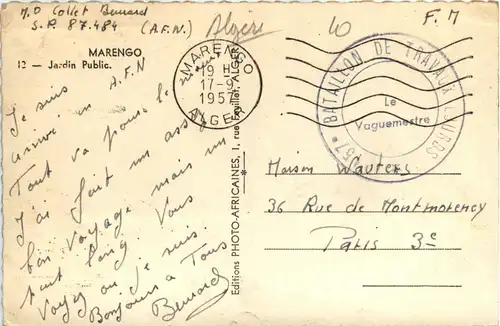 M.O Collet Bernard
S.P. 87.484 (A.F.N.) Algérie
10
F. M
MARENGO
12 — Jardin Public.
A.F.N
Je suis
arrivé en
Tout va pour le
J'ai fait un assez
bon voyage mais un
peu long Vous
voyez où je suis.
Bonjour à Tous
Bernard
MARENGO
19 H
17-9
1957
ALGER
Editions PHOTO-AFRICAINES, 1, rue Feuillet, ALGER
BATAILLON DE TRAVAUX LOURDS
57
Le
Vaguemestre
Maison Wauters
36 Rue de Montmorency
Paris 3e